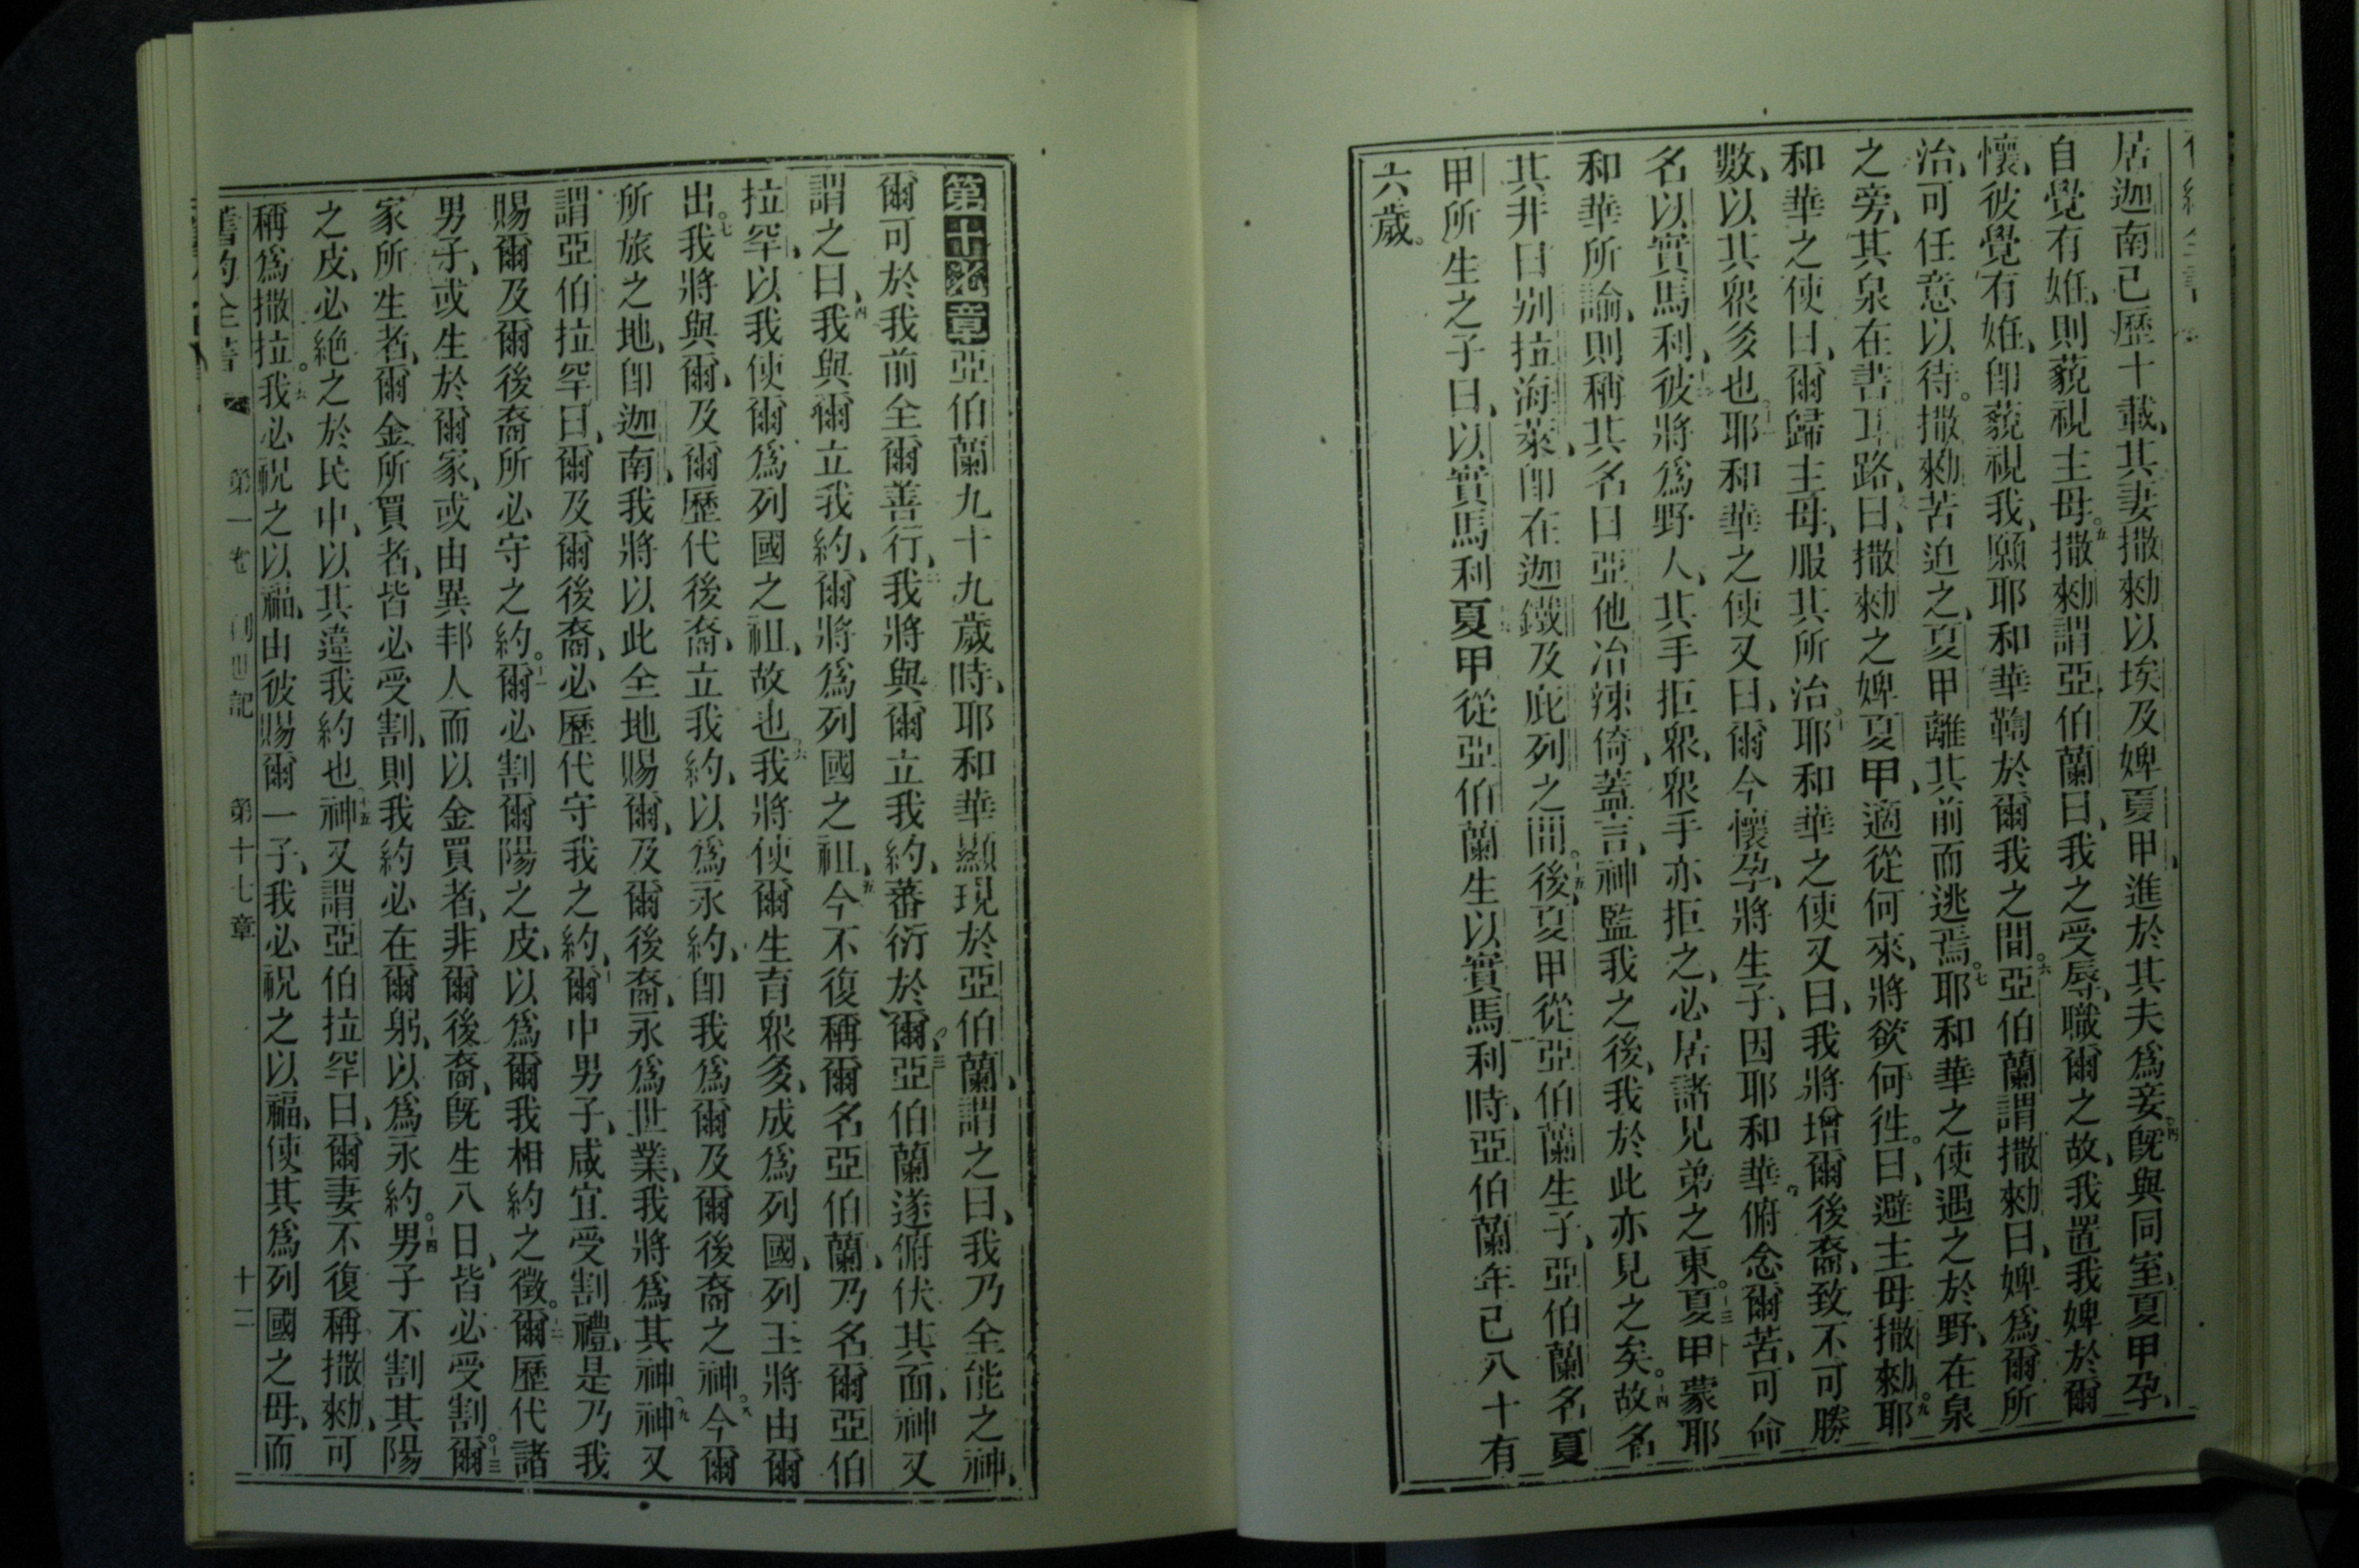 居迦南已歷十載、其妻撒勑以埃及婢夏甲、進於其夫爲妾。四旣與同室、夏甲孕、
自覺有姙、則藐視主母。五撒勑謂亞伯蘭曰、我之受辱、職爾之故、我置我婢於爾
懷、彼覺有姙、卽藐視我、願耶和華鞫於爾我之間。六亞伯蘭謂撒勑曰、婢爲爾所
治、可任意以待。撒勑苦迫之、夏甲離其前而逃焉。七耶和華之使遇之於野、在泉
之旁、其泉在書耳路、曰、撒勑之婢夏甲、適從何來、將欲何徃。曰、避主母撒勑。九耶
和華之使曰、爾歸主母、服其所治。耶和華之使又曰、我將增爾後裔、致不可勝
數、以其衆多也。耶和華之使又曰、爾今懷孕、將生子、因耶和華俯念爾苦、可命
名以實馬利、彼將爲野人、其手拒衆、衆手亦拒之、必居諸兄弟之東。十三夏甲蒙耶
和華所諭、則稱其名曰亞他冶竦倚、蓋言、神監我之後、我於此亦見之矣。十四故名
其井曰别拉海萊、卽在迦鐵及庇列之間。十五後、夏甲從亞伯蘭生子、亞伯蘭名夏
甲所生之子曰、以實馬利夏甲從亞伯蘭生以實馬利時、亞伯蘭年已八十有
六歲。
第十七章亞伯蘭九十九歲時、耶和華顯現於亞伯蘭、謂之曰、我乃全能之神、
爾可於我前全爾善行、二我將與爾立我約、蕃衍於爾、三亞伯蘭遂俯伏其面、神又
謂之曰、四我與爾立我約、爾將爲列國之祖、五今不復稱爾名亞伯蘭、乃名爾亞伯
拉罕、以我使爾爲列國之祖、故也六我將使爾生育衆多、成爲列國、列王將由爾
出。七我將與爾、及爾歷代後裔、立我約、以爲永約、卽我爲爾及爾後裔之神。八今爾
所旅之地、卽迦南、我將以此全地賜爾、及爾後裔、永爲世業、我將爲其神九神又
謂亞伯拉罕曰、爾及爾後裔、必歷代守我之約、十爾中男子、咸宜受割禮、是乃我
賜爾及爾後裔所必守之約。十一爾必割爾陽之皮、以爲爾我相約之徵。十二爾歷代諸
男子、或生於爾家、或由異邦人而以金買者、非爾後裔、旣生八日、皆必受割。十三爾
家所生者、爾金所買者、皆必受割、則我約必在爾躬、以爲永約。十四男子不割其陽
之皮、必絶之於民中、以其違我約也十五神又謂亞伯拉罕曰、爾妻不復稱撒勑、可
稱爲撒拉。十六我必祝之以福、由彼賜爾一子、我必祝之以福、使其爲列國之母、而
舊約全書 第一卷 創世記 第十七章 十二